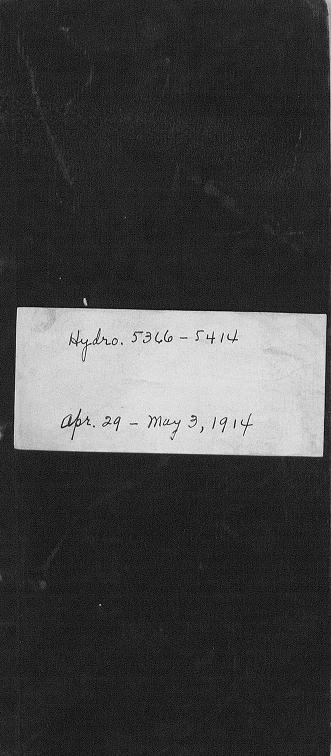 Hydro. 5366 - 5414
Apr. 29 - May 3, 1914